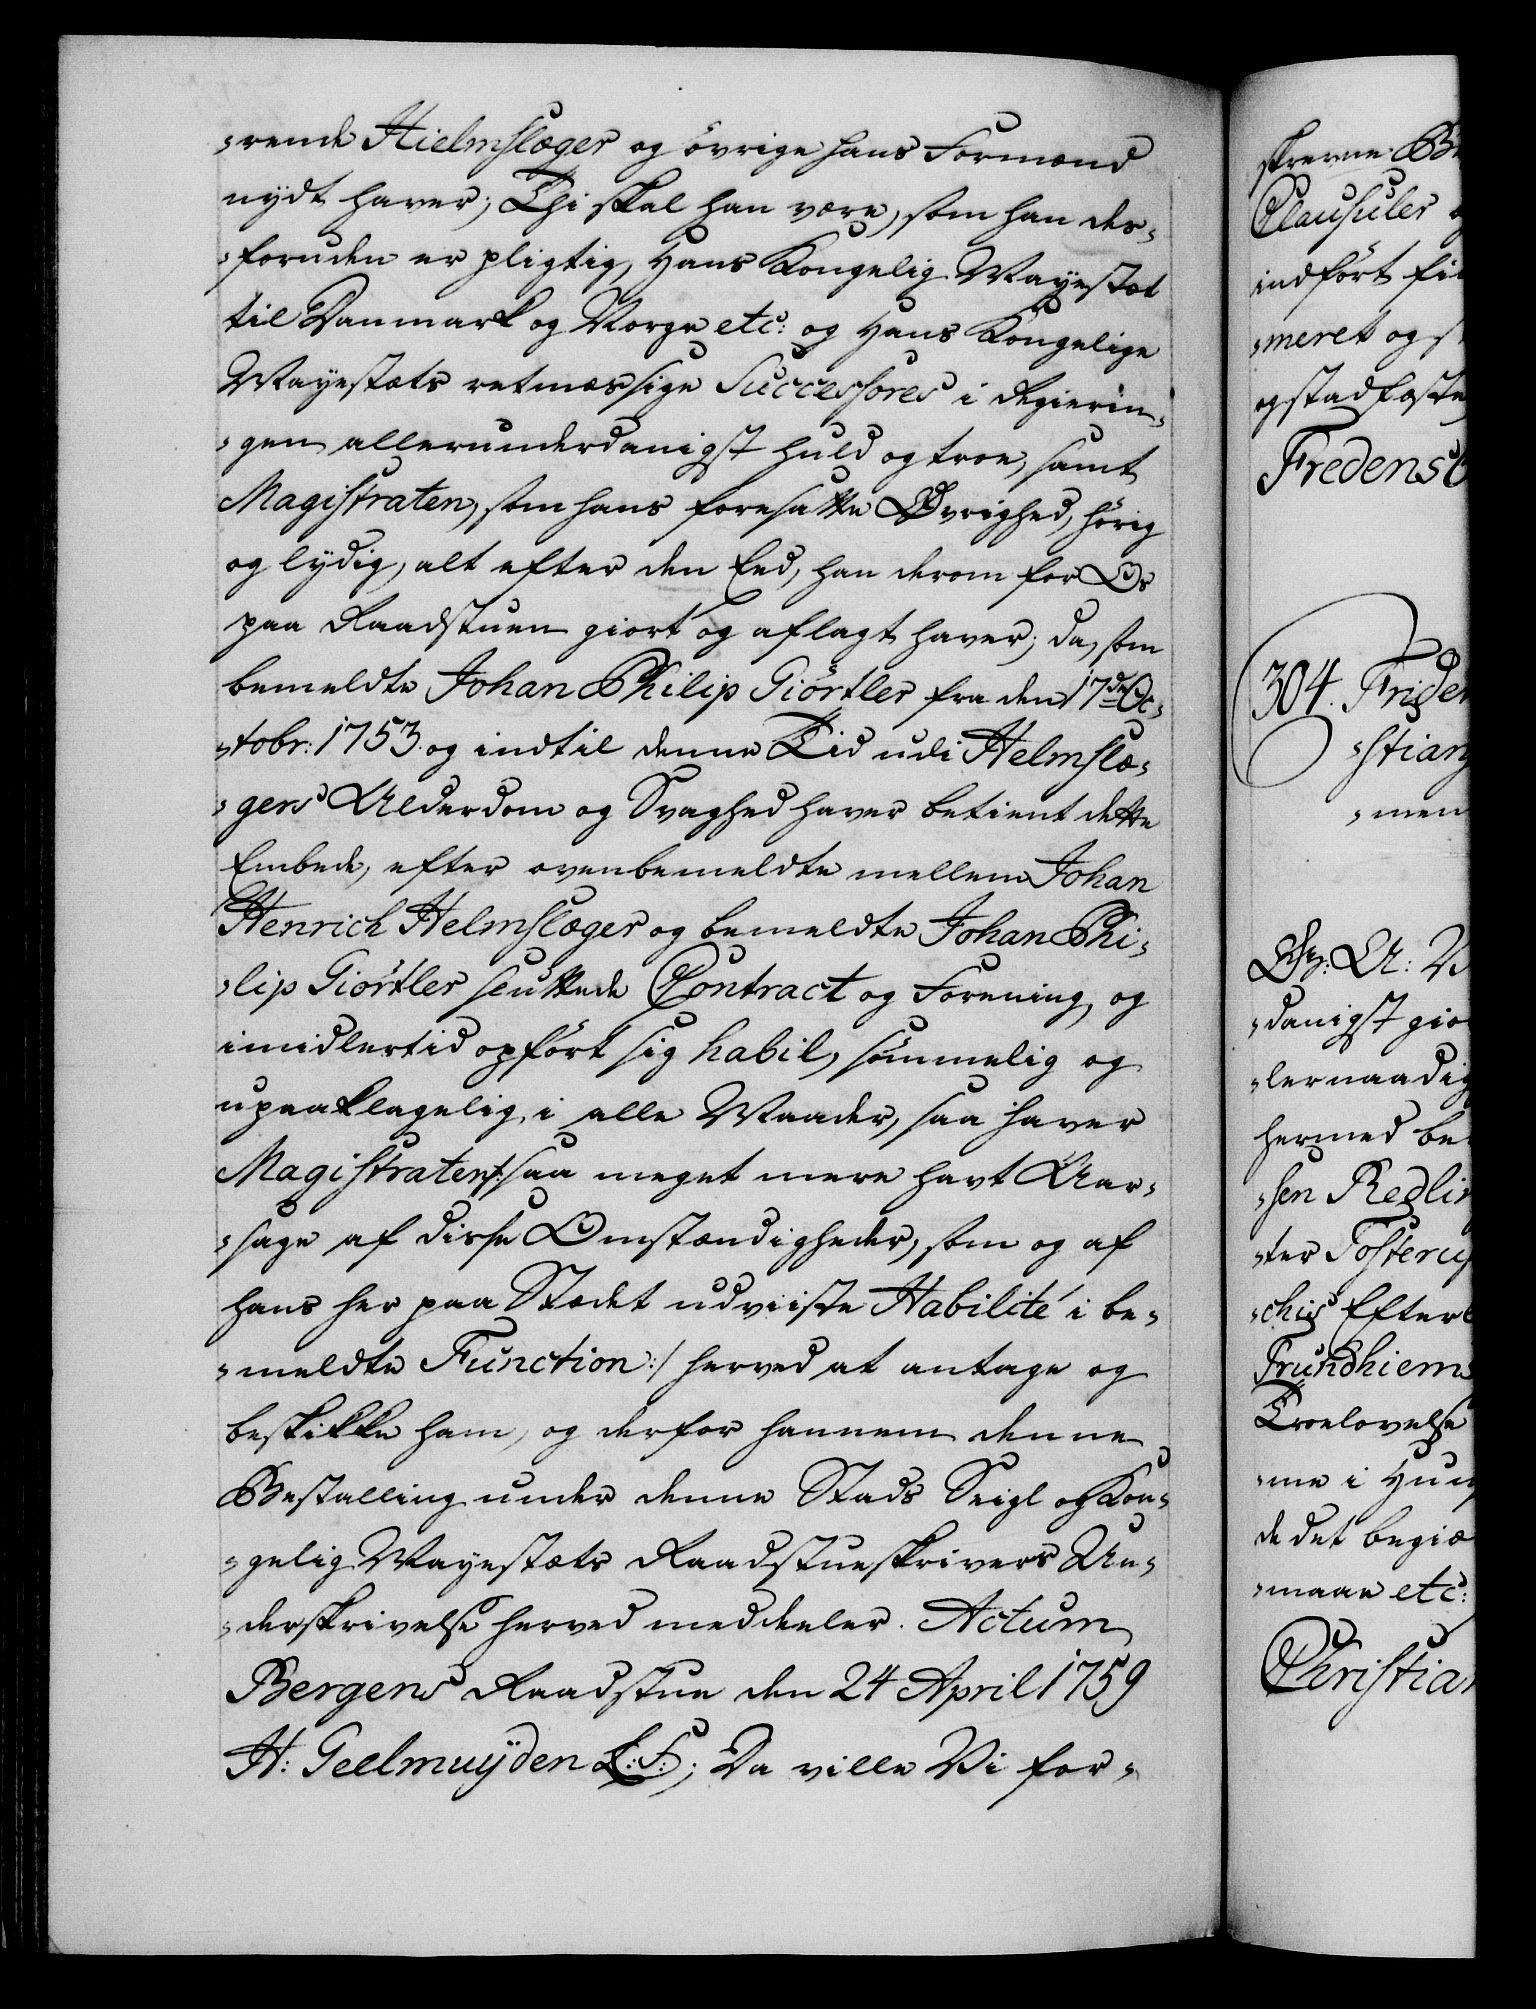 -rende Hielmslæger og övrige hans Formænd
nydt haver; Thi skal han være, som han des-
-foruden er pligtig, Hans Kongelig Mayestæt
til Danmark og Norge etc: og Hans Kongelige
Mayestæts retmæssige Successores i Regierin-
-gen allerunderdanigst huld og troe, samt
Magistraten, som hans foresatte Øvrighed, hörig
og lydig, alt efter den Eed, han derom for Os
paa Raadstuen giort og aflagt haver; da, som
bemeldte Johan Philip Giörtler fra den 17de Oc-
-tobr: 1753 og indtil denne Tid udi Helmslæ-
-gers Alderdom og Svaghed haver betient dette
Embede, efter ovenbemeldte mellem Johan
Henrich Helmslæger og bemeldte Johan Phi-
-lip Giörtler sluttede Contract og Forening, og
imidlertid opfört sig habil, sömmelig og
upaaklagelig i alle Maader, saa haver
Magistraten /: saa meget mere havt Aar-
-sage af disse Omstændigheder, som og af
hans her paa Stædet udviiste Habilité i be-
-meldte Function :/ herved at antage og
beskikke ham, og derfor hannem denne
Bestalling under denne Stads Seigl og Kon-
-gelig Mayestæts Raadstueskrivers Un-
-derskrivelse herved meddeeler. Actum
Bergens Raadstue den 24 April 1759
H: Geelmuyden L: S:; Da ville Vi for-
skrevne
Clausuler
indfört
-meret og
og stadfæste
304.
-stian
-men
-danigst
-lernaadig
hermed
-sen
-ter
-chis Efter
Trundhiems
Troelovelse
-me i
de det begiæ
-maae etc:
Christian